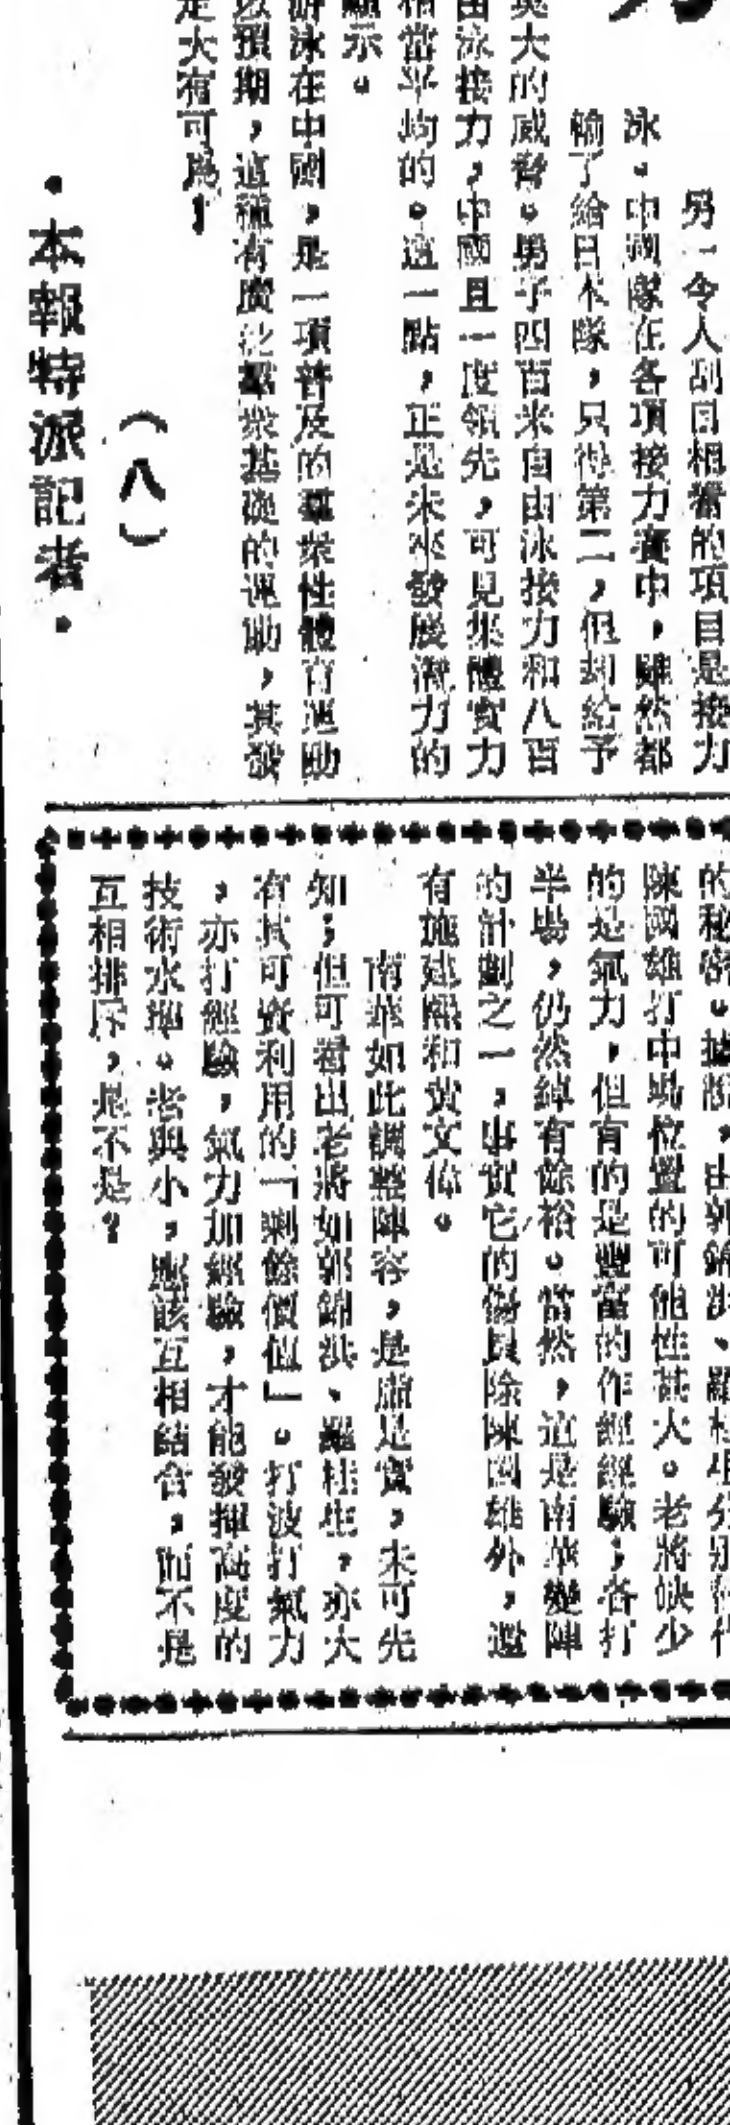 另一令人刮目相看的項目是接力
泳。中國隊在各項接力賽中,雖然都
輸了給日本隊,只得第二,但却給予
大的威脅。男子四百米自由泳接力和八百
由泳接力,中國且一度領先,可見集體實力
相當平均的。這一點,正是未來發展潛力的
顯示。
游泳在中國,是一項普及的羣衆性體育運動
以預期,這種有廣泛羣衆基礎的運動,其發
是大有可爲!
(八)
·本報特派記者·
的秘密。據說,由郭錦洪、羅桂生分別
陳國雄打中場位置的可能性甚大。老將缺少
的是氣力,但有的是豐富的作經經驗;各打
半場,仍然綽有餘裕。當然,這是南華變陣
的計劃之一,事實它的傷員除陳國雄外,還
有施建熙和黃文偉。
南華如此調整陣容,是虛是實,未可先
知;但可看出老將如郭錦洪、羅桂生,亦大
有其可資利用的「剩餘價值」。打波打氣力
,亦打經驗,氣力加經驗,才能發揮高度的
技術水準。老與小,應該互相結合,而不是
互相排斥,是不是?